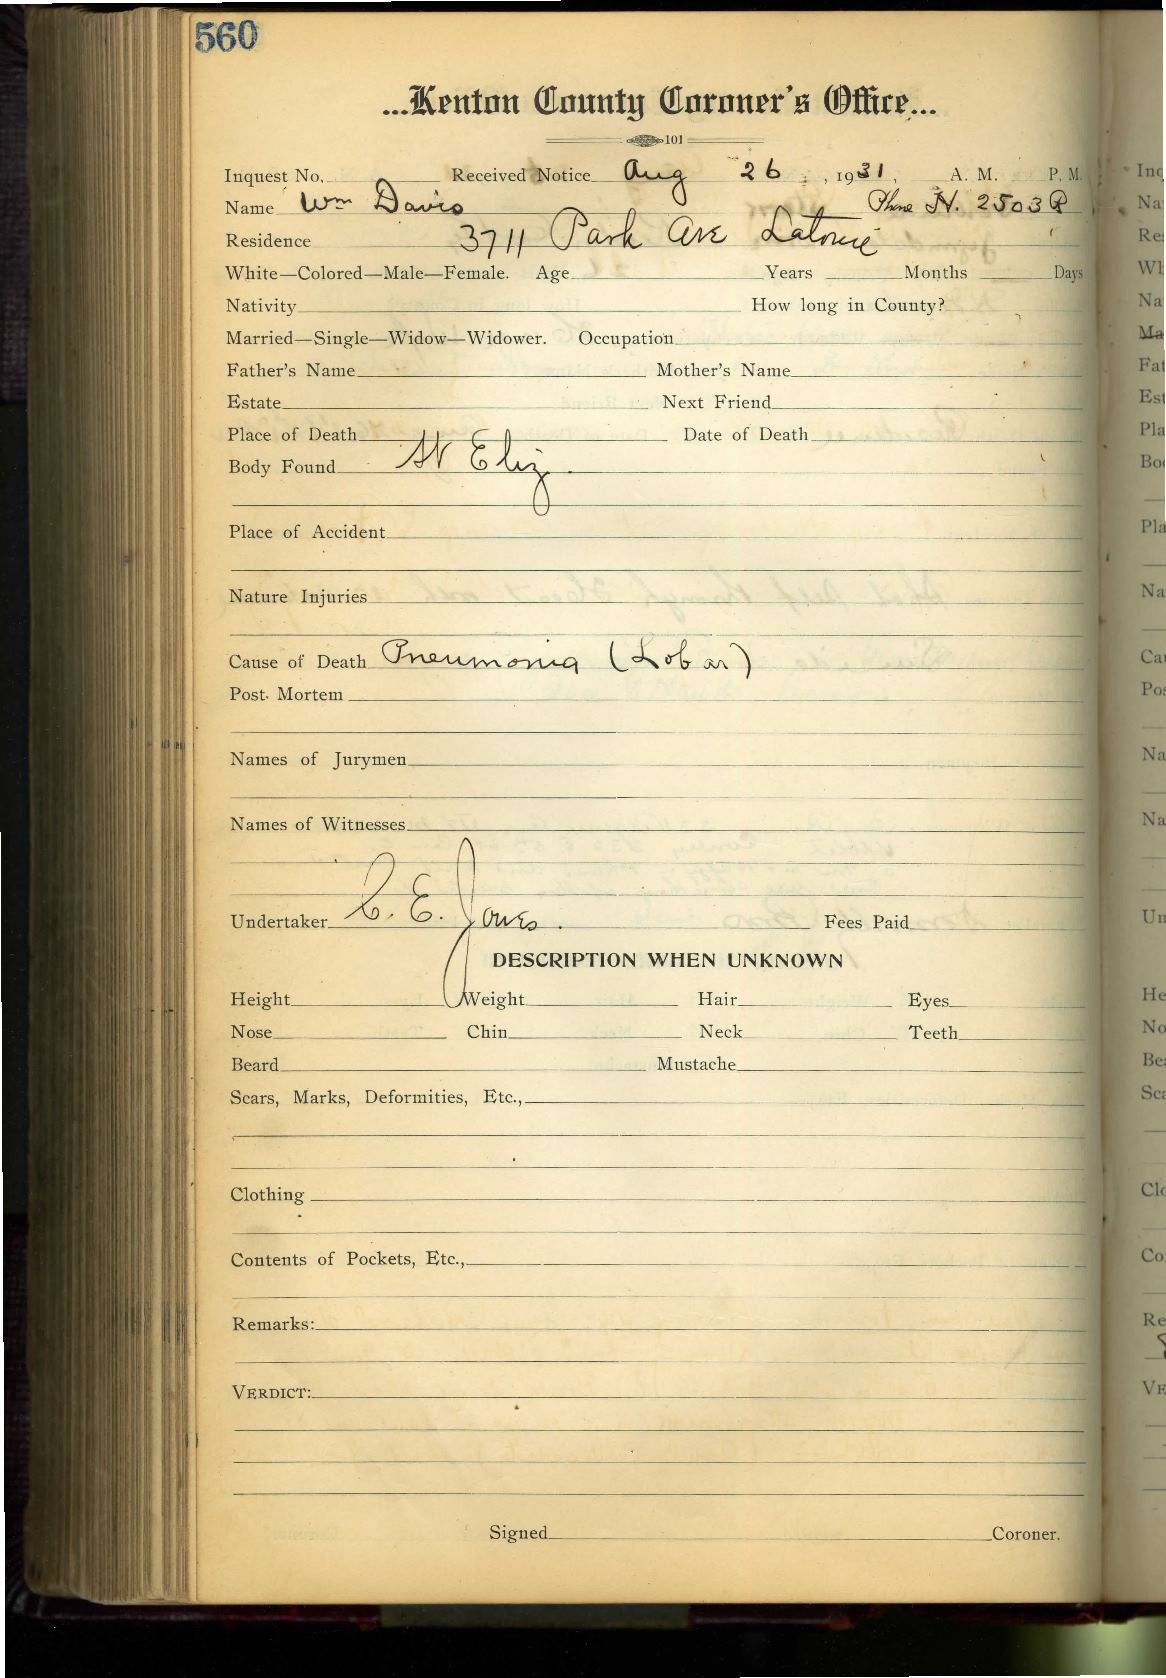 560
...Kenton County Coroner's Office...
101
Inquest No. Received Notice Aug 26, 1931, A. M. P. M.
Name Wm Davis Phone H. 2503R
Residence 3711 Park Ave Latonia
White—Colored—Male—Female. Age Years Months Days
Nativity How long in County?
Married—Single—Widow—Widower. Occupation
Father's Name Mother's Name
Estate Next Friend
Place of Death Date of Death
Body Found St Eliz.
Place of Accident
Nature Injuries
Cause of Death Pneumonia (Lobar)
Post Mortem
Names of Jurymen
Names of Witnesses
Undertaker C. E. Jones. Fees Paid
DESCRIPTION WHEN UNKNOWN
Height Weight Hair Eyes
Nose Chin Neck Teeth
Beard Mustache
Scars, Marks, Deformities, Etc.,
Clothing
Contents of Pockets, Etc.,
Remarks:
VERDICT:
Signed Coroner.